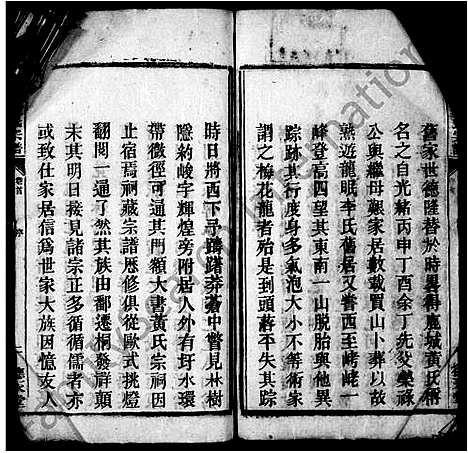 舊家世德隆替於時異得鹿城黃氏稱
名之自光緒丙申丁酉余丁先父欒祿
公與繼母艱家居數載買山小葬以故
熟遊龍眠李氏舊居又嘗西至峔峔一
峰登高四望其東南一山脫胎與他異
踪跡其行度身多氣泡大小不等術家
謂之梅花龍者殆是到頭蔣平失其踪
時日將西下尋躋躇莽蒼中瞥見林樹
隱約峻宇輝煌旁附居人外有圩水環
帶微徑可通其門額大書黃氏宗祠因
止宿焉祠藏宗譜厯修俱從歐式挑燈
翻閱一通了然其族由鄱遷桐發祥顛
末其明日接見諸宗正多循循儒者亦
或致仕家居信爲世家大族因憶友人